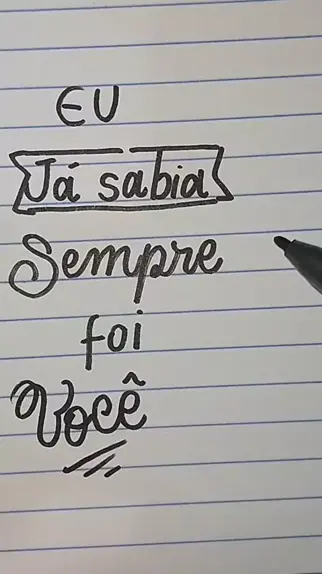 EU
Já sabia
Sempre
foi
Você